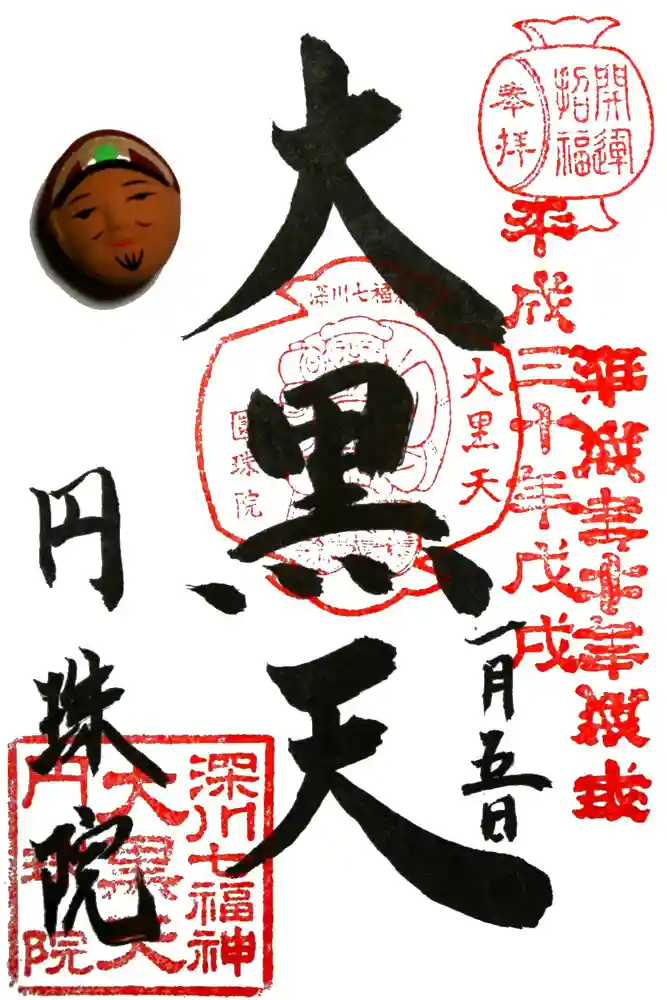 開運
招福
奉拝
平成三十年戊戌
一月五日
大黒天
深川七福神
大黒天
圓珠院
円珠院
深川七福神
大黒天
円珠院